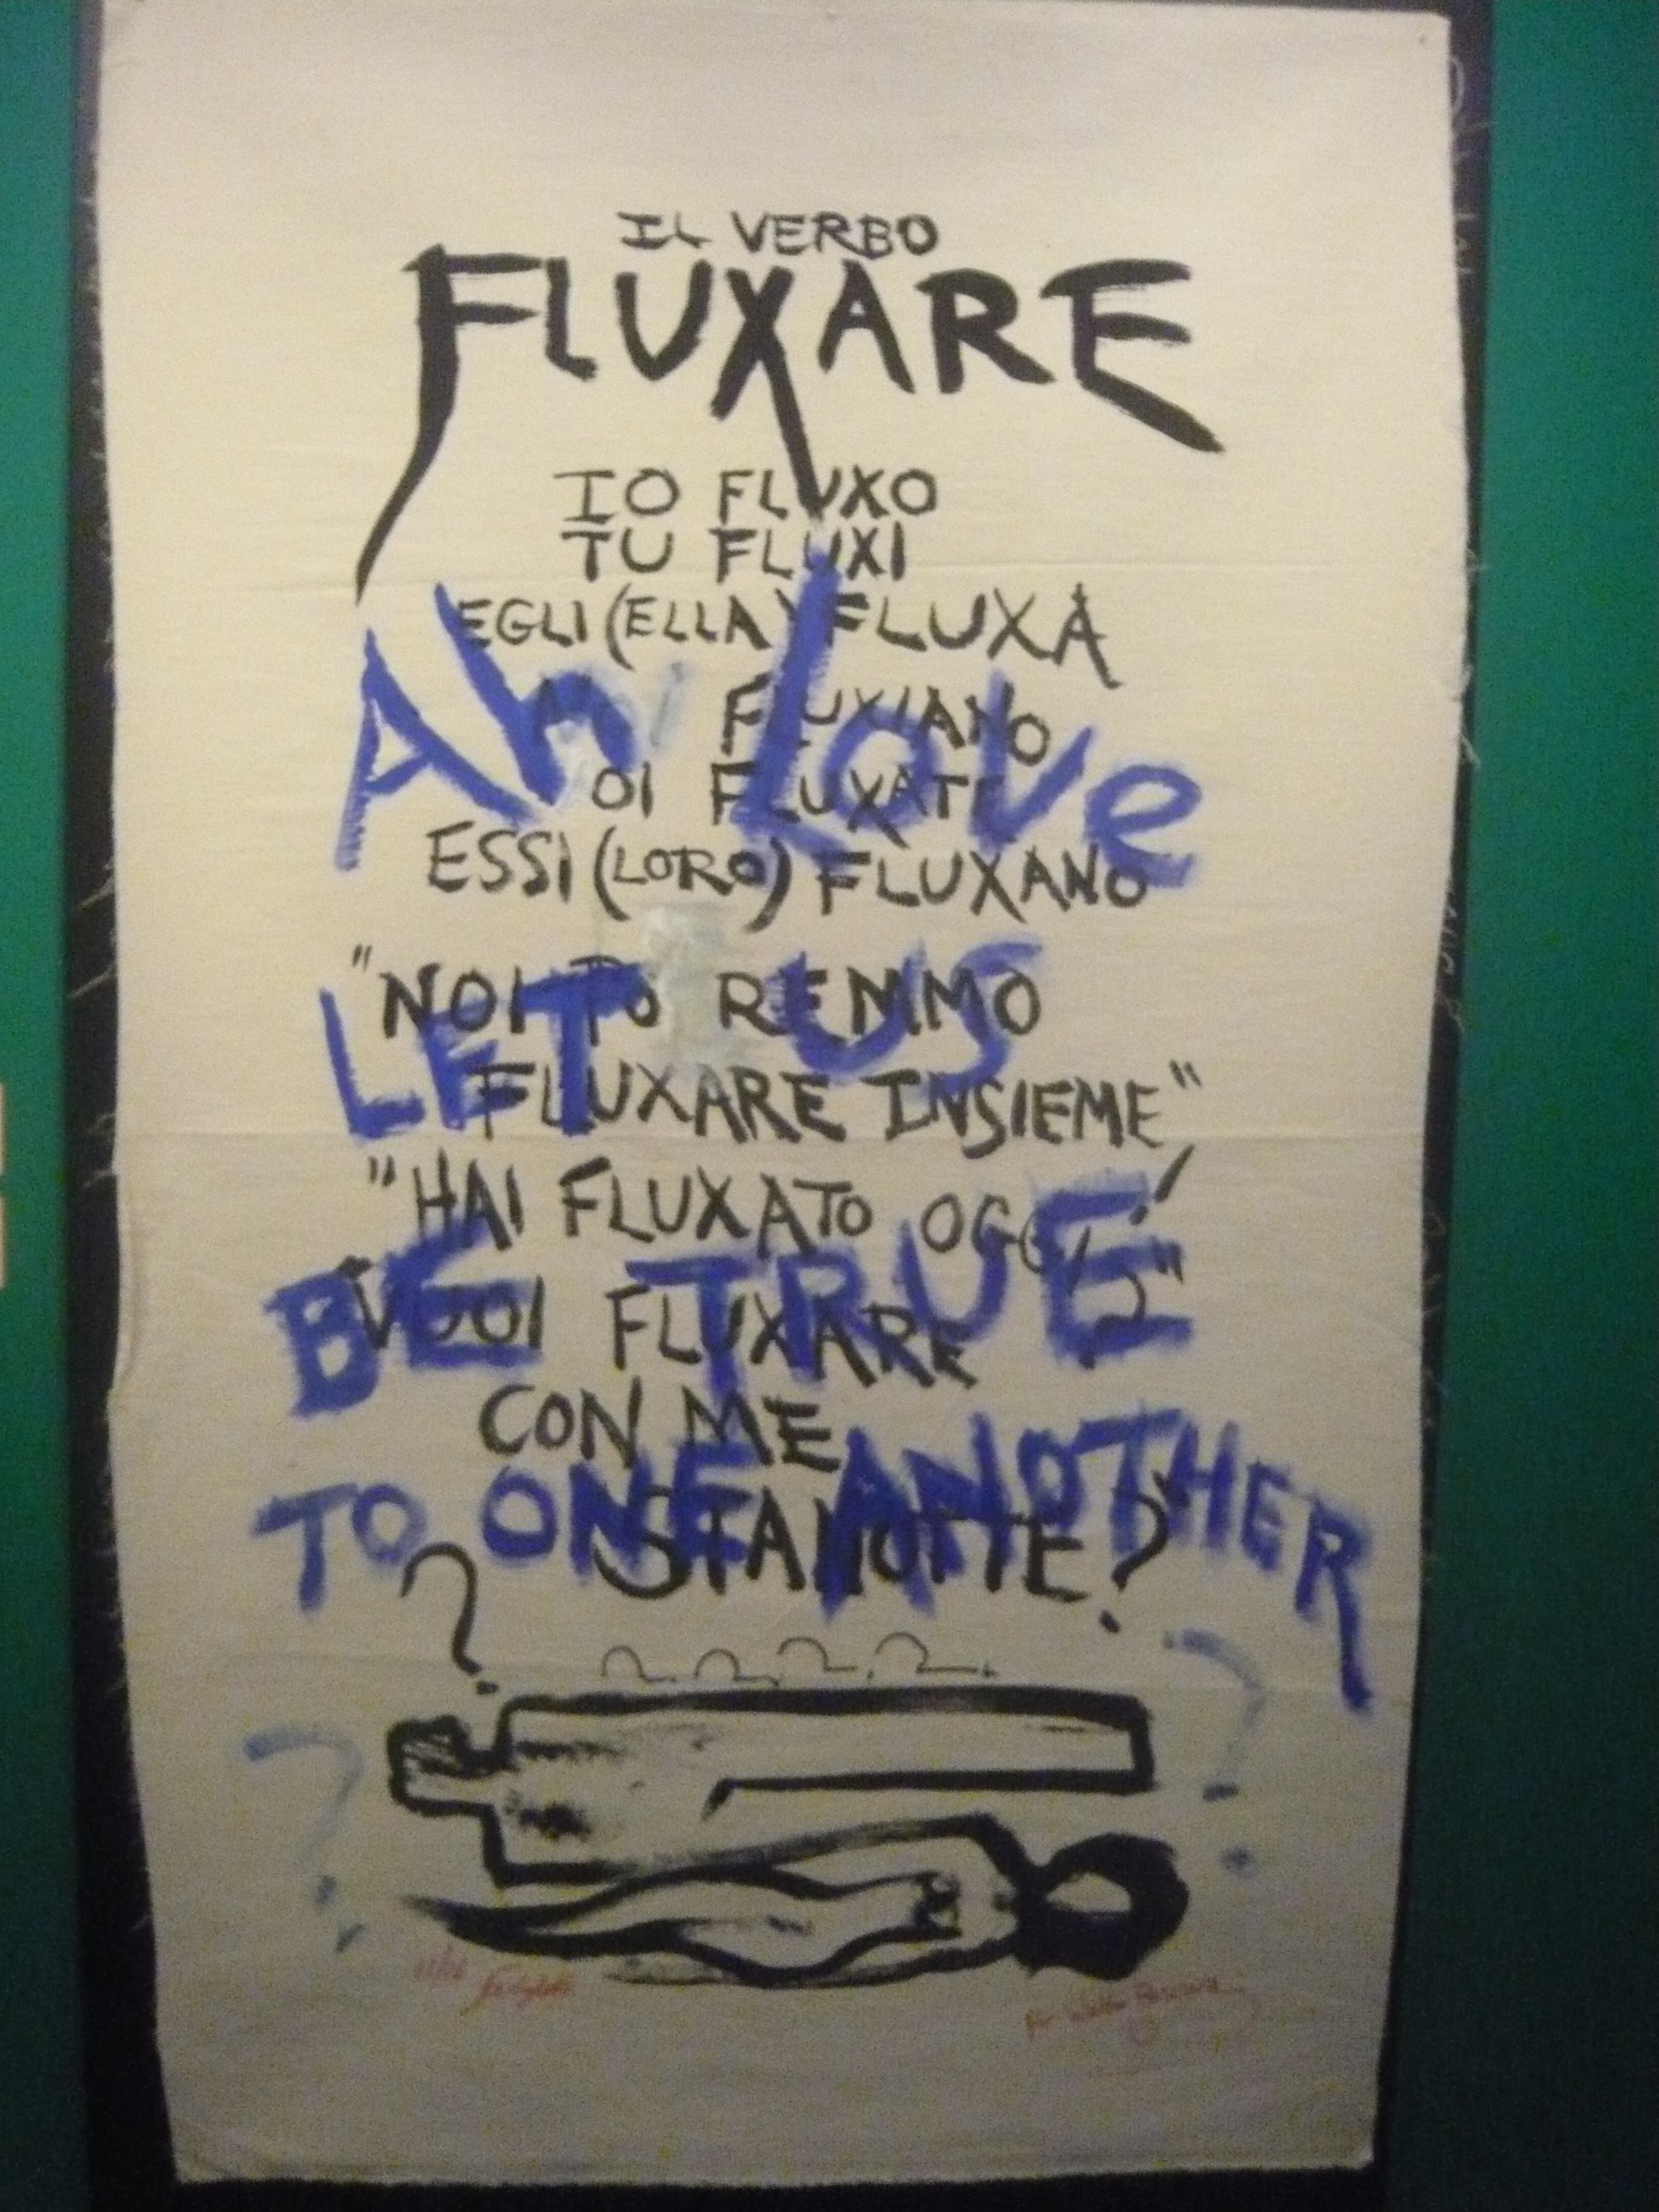 IL VERBO
FLUXARE
IO FLUXO
TU FLUXI
EGLI (ELLA) FLUXA
NOI FLUXIANO
OI FLUXATE
ESSI (LORO) FLUXANO
"NOI PO REMMO
FLUXARE INSIEME"
"HAI FLUXATO OGGI?"
"VUOI FLUXARE
CON ME
STANOTTE?
? ? ? ? ?
Ah Love
LET US
BE TRUE
TO ONE ANOTHER
? ?